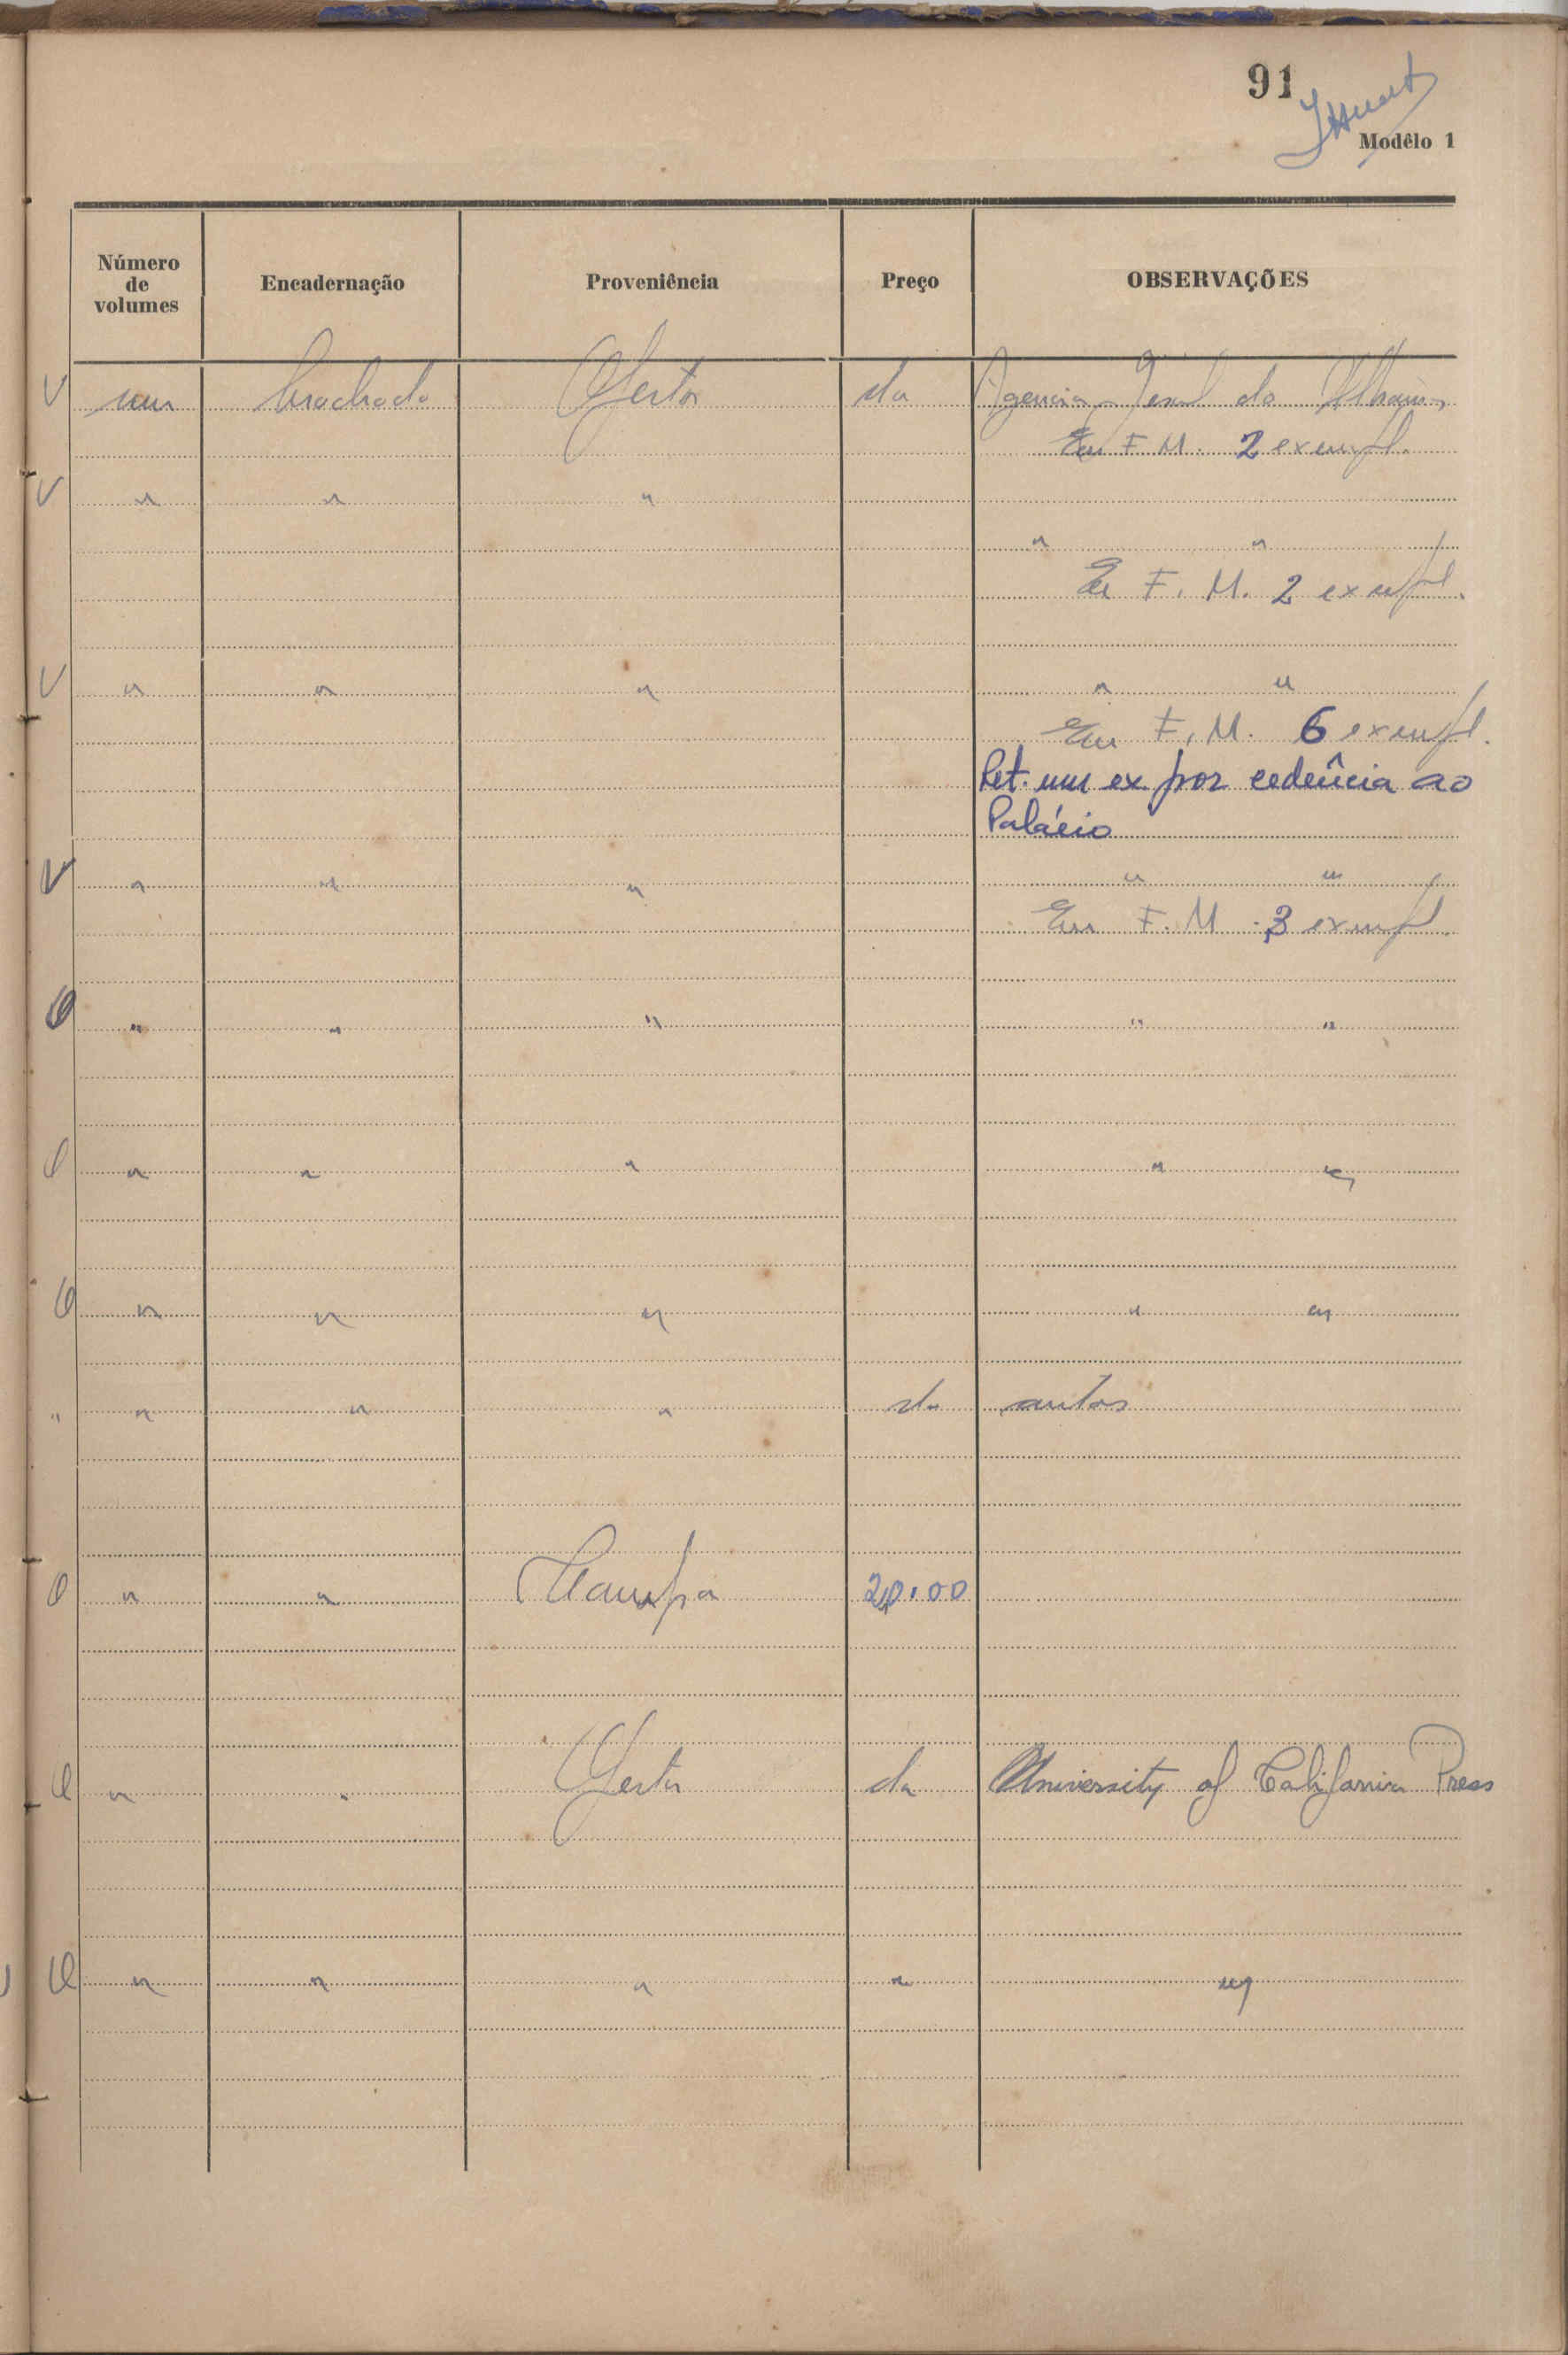 91
Modêlo 1
Número de volumes Encadernação Proveniência Preço OBSERVAÇÕES
V um brochado Oferta da Agencia Geral do Ultramar
Em F. M. 2 exempl.
V " " "
" "
Em F. M. 2 exempl.
V " " " " "
Em F. M. 6 exempl.
Ret. um ex. por cedência ao
Palácio
V " " " " "
Em F. M. 3 exempl.
" " " " "
" " " " "
" " " " "
" " " " do autor
" " Compra 20.00
" " Oferta da University of California Press
" " " " "